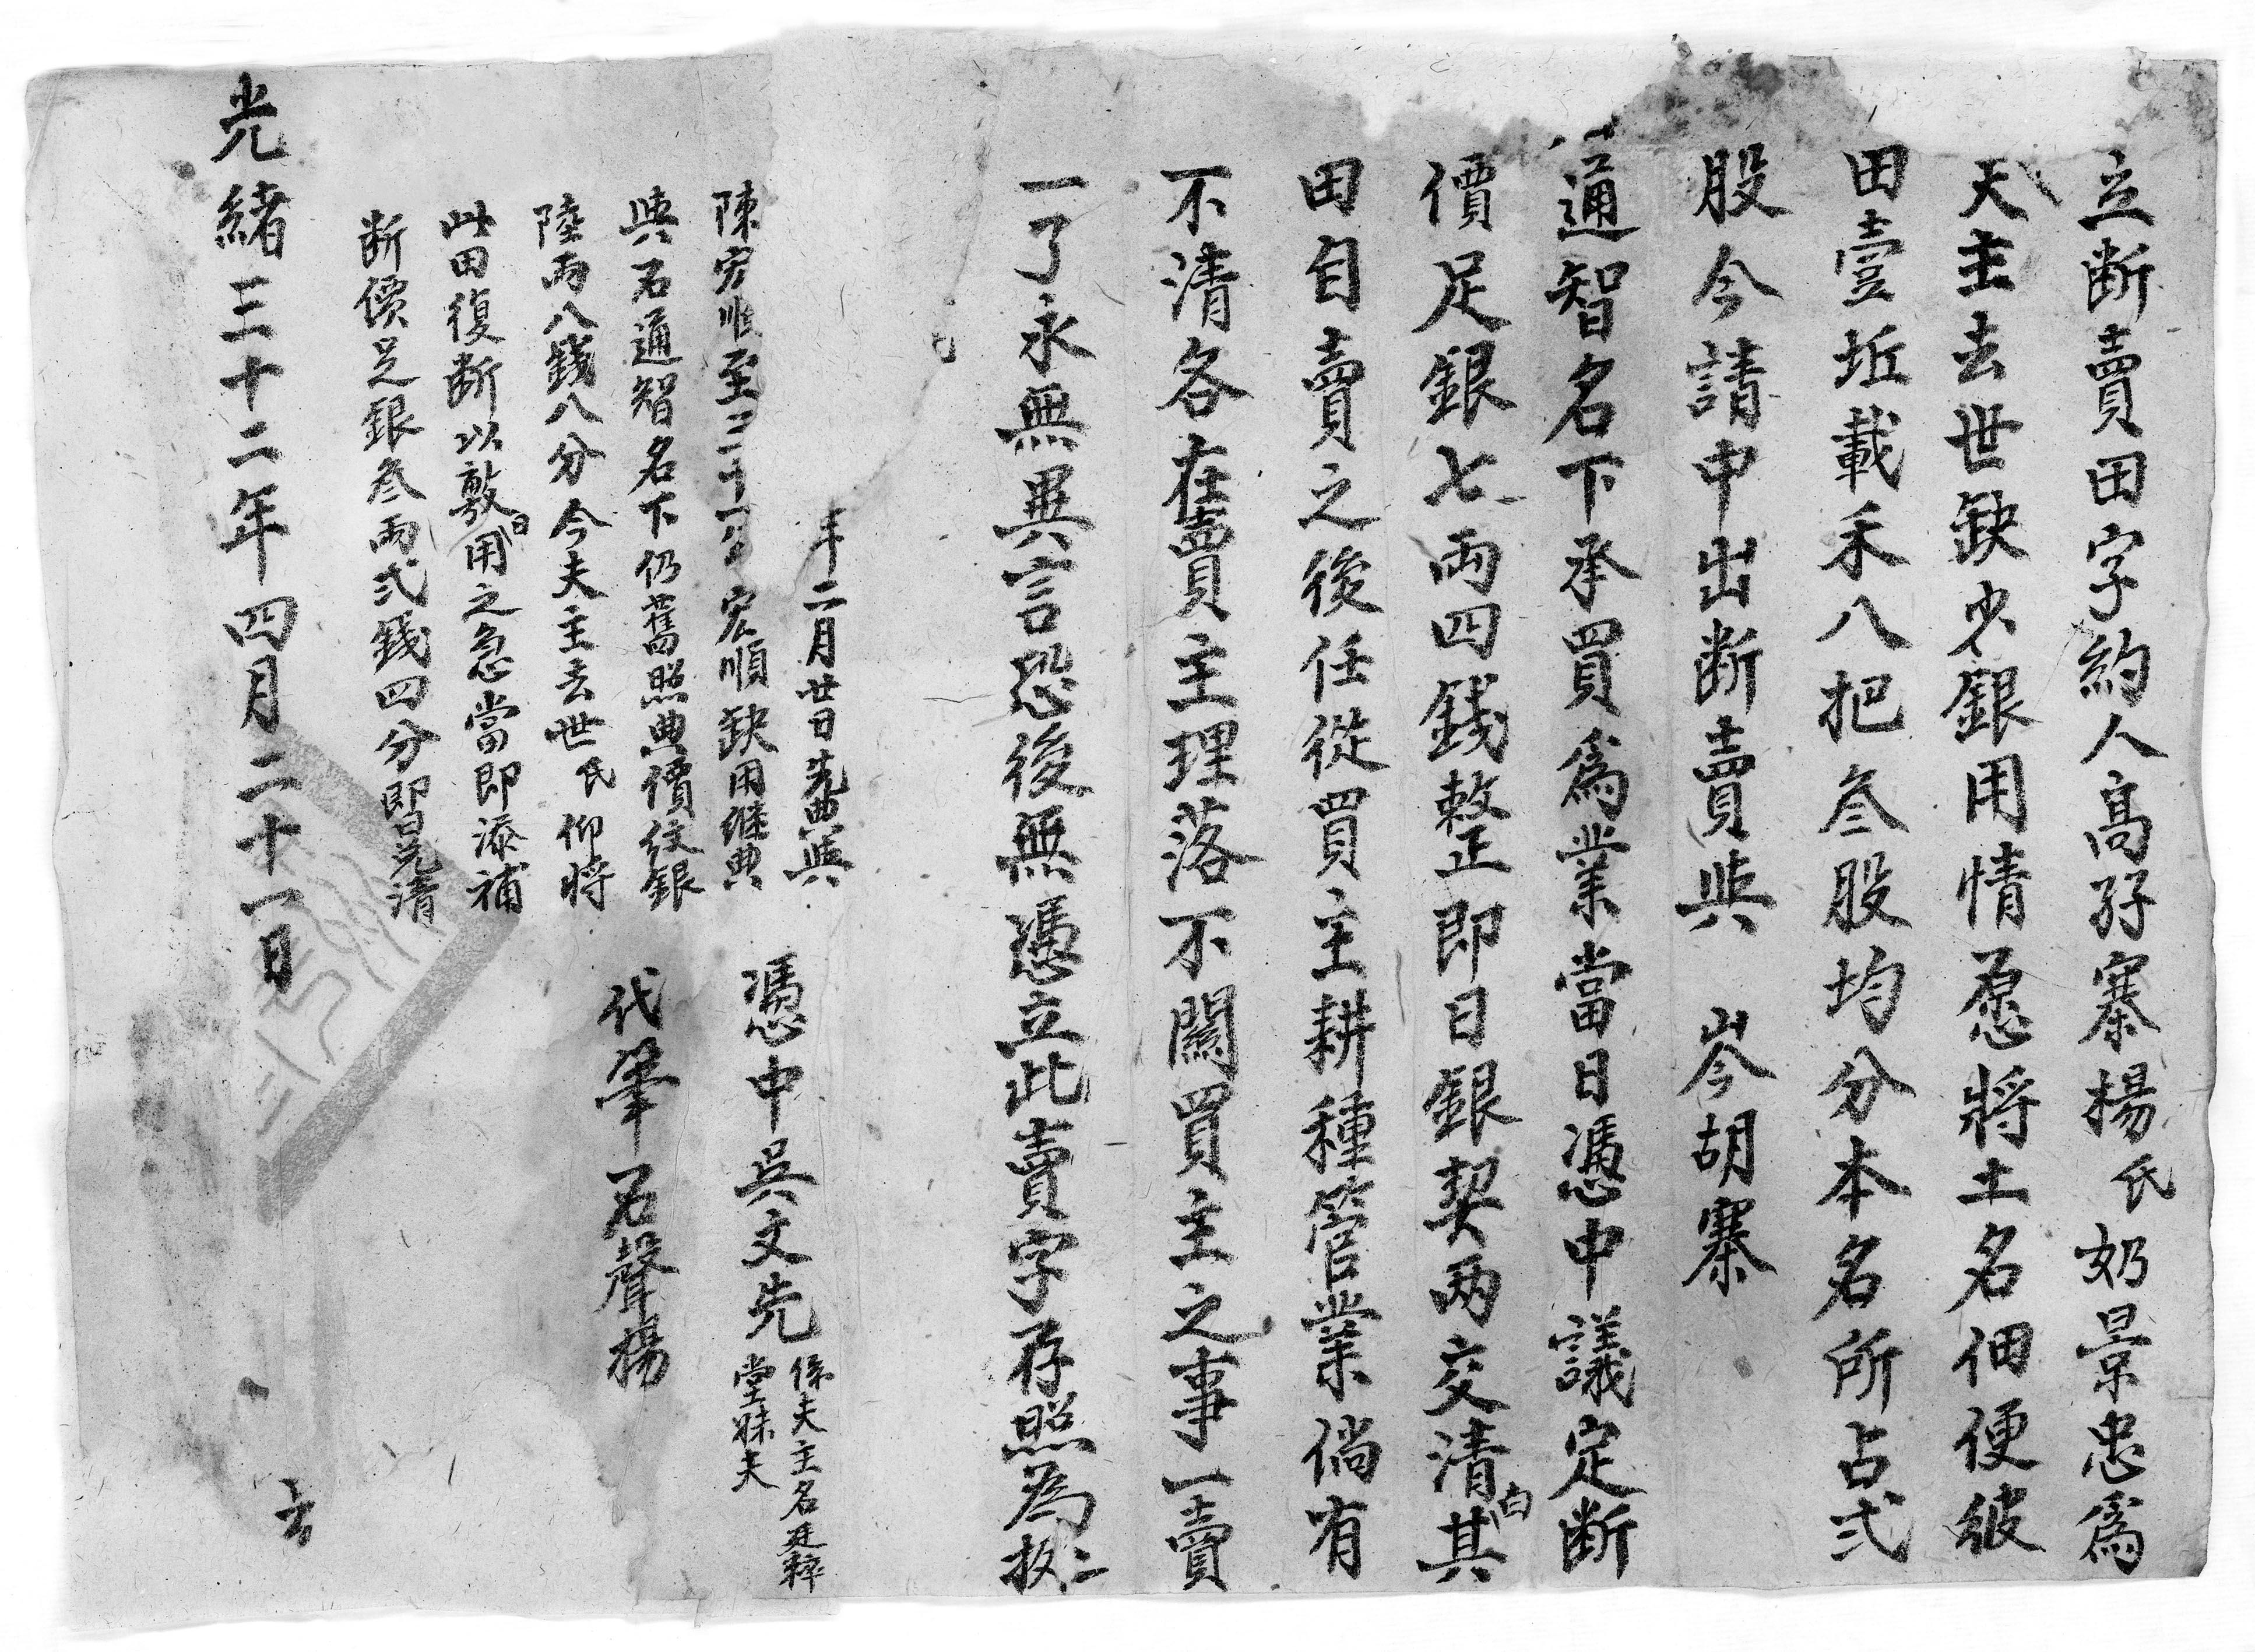 立断賣田字約人高孖寨楊氏奶景忠爲
夫主去世缺少銀用情愿將土名佃便彼
田壹坵載禾八把叁股均分本名所占弍
股今請中出断賣與 岑胡寨
通智名下承買爲業當日憑中議定断
價足銀七两四錢整正即日銀契两交清白其
田自賣之後任從買主耕種管業倘有
不清各在賣主理落不関買主之事一賣
一了永無異言恐後無憑立此賣字存照為
年二月廿日先典與
陳宏順至二十 宏順缺用継典
與石通智名下仍舊照典價纹銀
陸两八錢八分今夫主去世氏仰將
此田復断以敷日用之急當即添補
断價足銀叁两弍錢四分即日兑清
憑中吳文先
係夫主名廷
堂妹夫
代筆石聲揚
光緒三十二年四月二十一日
立